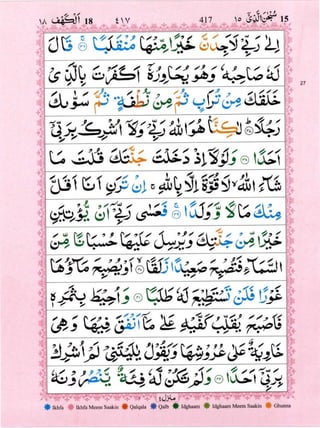 ١٨ الكهف 18 ٤١٧ 417 ١٥ سبحن الذي 15
اِلٰى رَبِّىْ لَاَجِدَنَّ خَيْرًا مِّنْهَا مُنْقَلَبًا ۚ‏ قَالَ
لَهٗ صَاحِبُهٗ وَهُوَ يُحَاوِرُهٗۤ اَكَفَرْتَ بِالَّذِىْ
خَلَقَكَ مِنْ تُرَابٍ ثُمَّ مِنْ نُّطْفَةٍ ثُمَّ سَوّٰٮكَ
رَجُلًاؕ‏ لٰـكِنَّا۟ هُوَ اللّٰهُ رَبِّىْ وَلَاۤ اُشْرِكُ بِرَبِّىْۤ
اَحَدًا‏ وَلَوْلَاۤ اِذْ دَخَلْتَ جَنَّتَكَ قُلْتَ مَا
شَآءَ اللّٰهُ ۙ لَا قُوَّةَ اِلَّا بِاللّٰهِ‌ ۚ اِنْ تَرَنِ اَنَا اَقَلَّ
مِنْكَ مَالًا وَّوَلَدًا‌ ۚ‏ فَعَسٰى رَبِّىْۤ اَنْ يُّؤْتِيَنِ
خَيْرًا مِّنْ جَنَّتِكَ وَيُرْسِلَ عَلَيْهَا حُسْبَانًا مِّنَ
السَّمَآءِ فَتُصْبِحَ صَعِيْدًا زَلَقًا ۙ‏ اَوْ يُصْبِحَ مَآؤُهَا
غَوْرًا فَلَنْ تَسْتَطِيْعَ لَهٗ طَلَبًا‏ وَاُحِيْطَ بِثَمَرِهٖ
فَاَصْبَحَ يُقَلِّبُ كَفَّيْهِ عَلٰى مَاۤ اَنْفَقَ فِيْهَا وَهِىَ
خَاوِيَةٌ عَلٰى عُرُوْشِهَا وَيَقُوْلُ يٰلَيْتَنِىْ لَمْ اُشْرِكْ
بِرَبِّىْۤ اَحَدًا‏ وَلَمْ تَكُنْ لَّهٗ فِئَةٌ يَّنْصُرُوْنَهٗ
منزل٤
Ikhfa Ikhfa Meem Saakin Qalqala Qalb Idghaam Idghaam Meem Saakin Ghunna